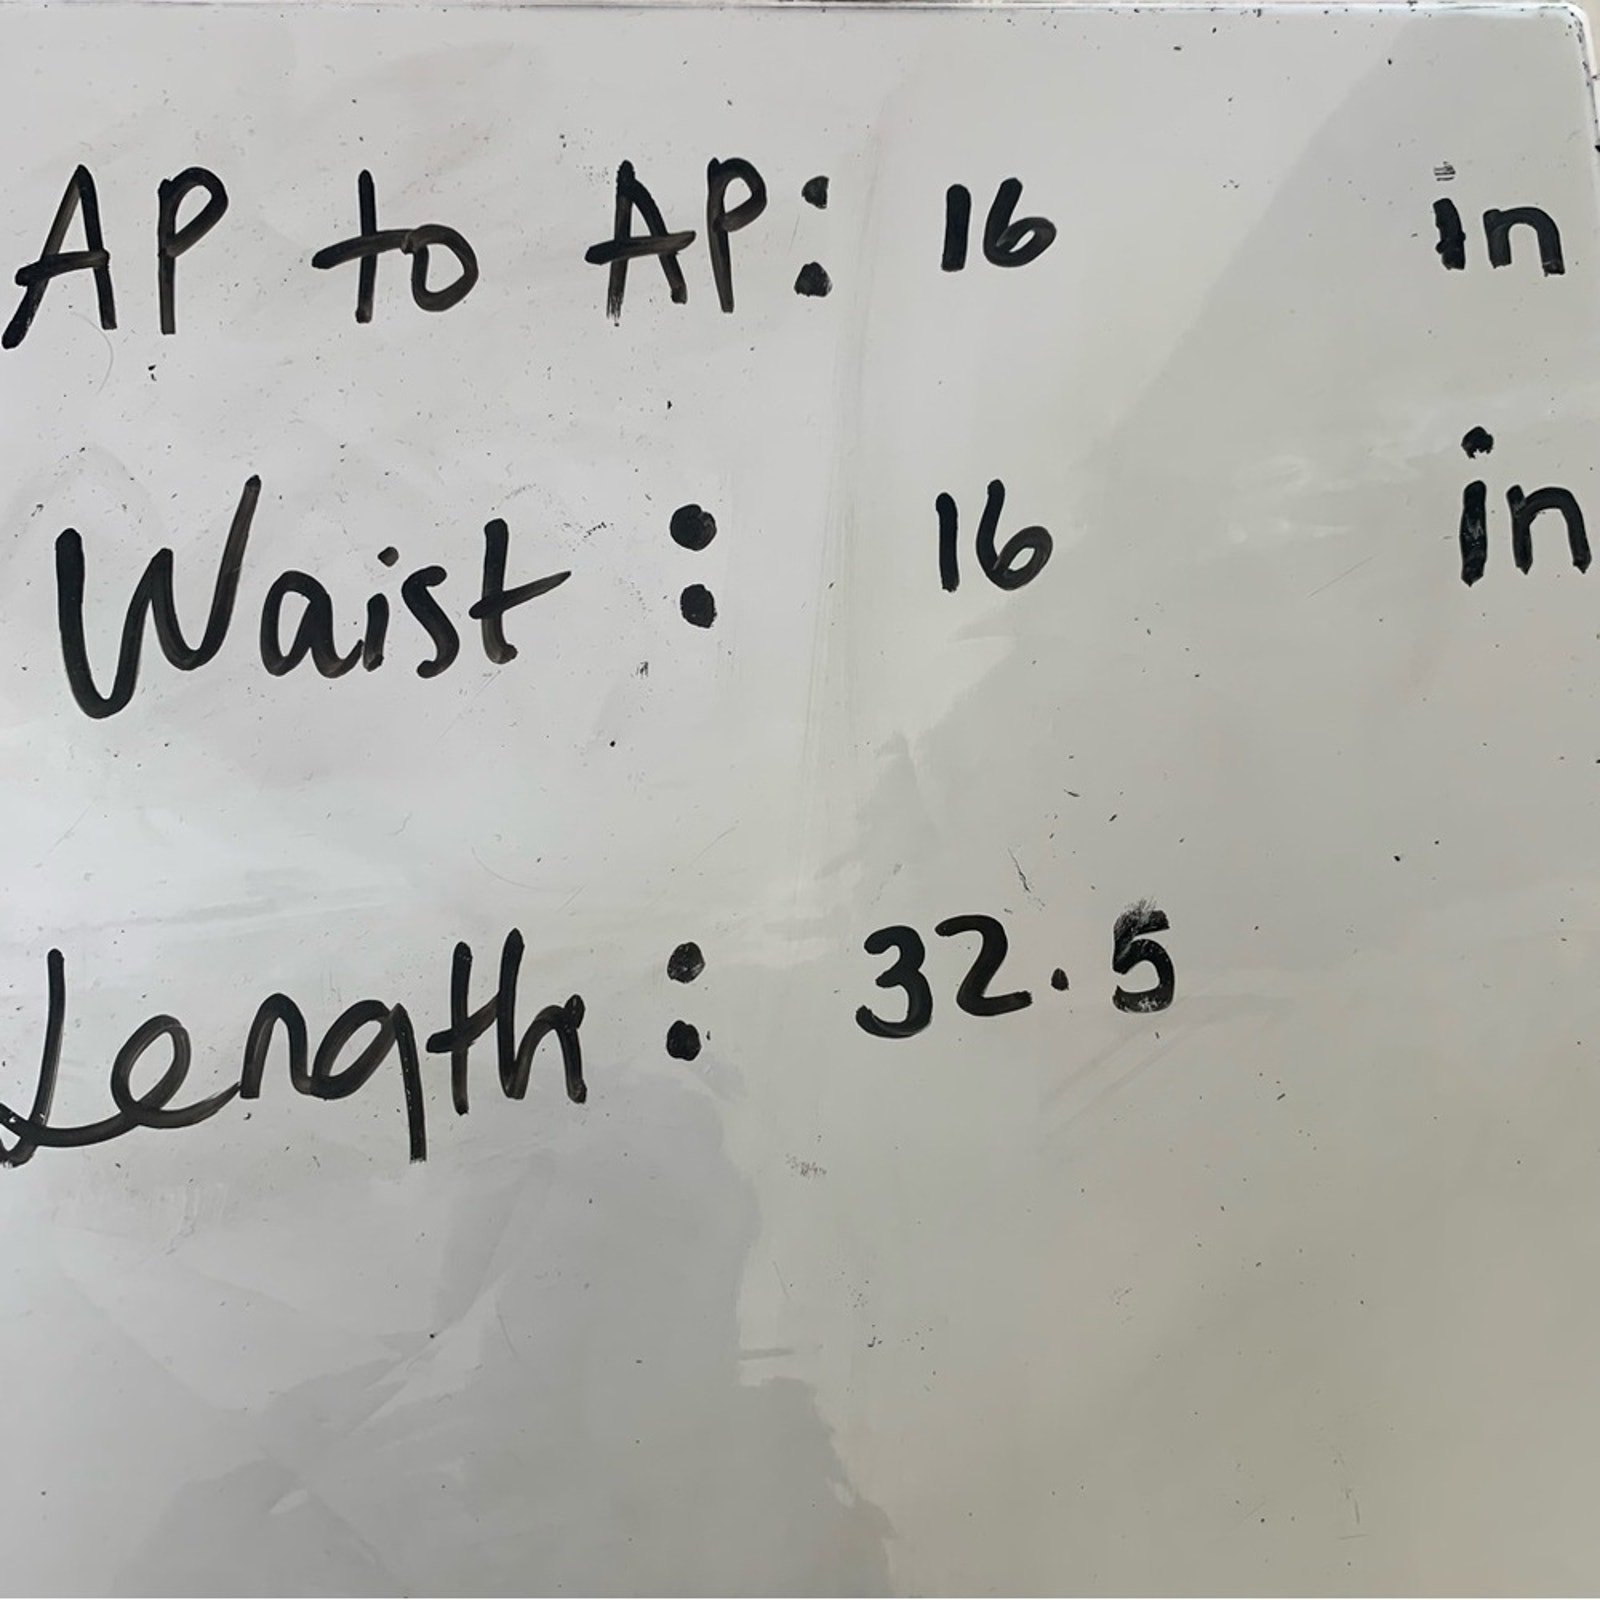 AP to AP: 16 in
Waist : 16 in
Length : 32.5